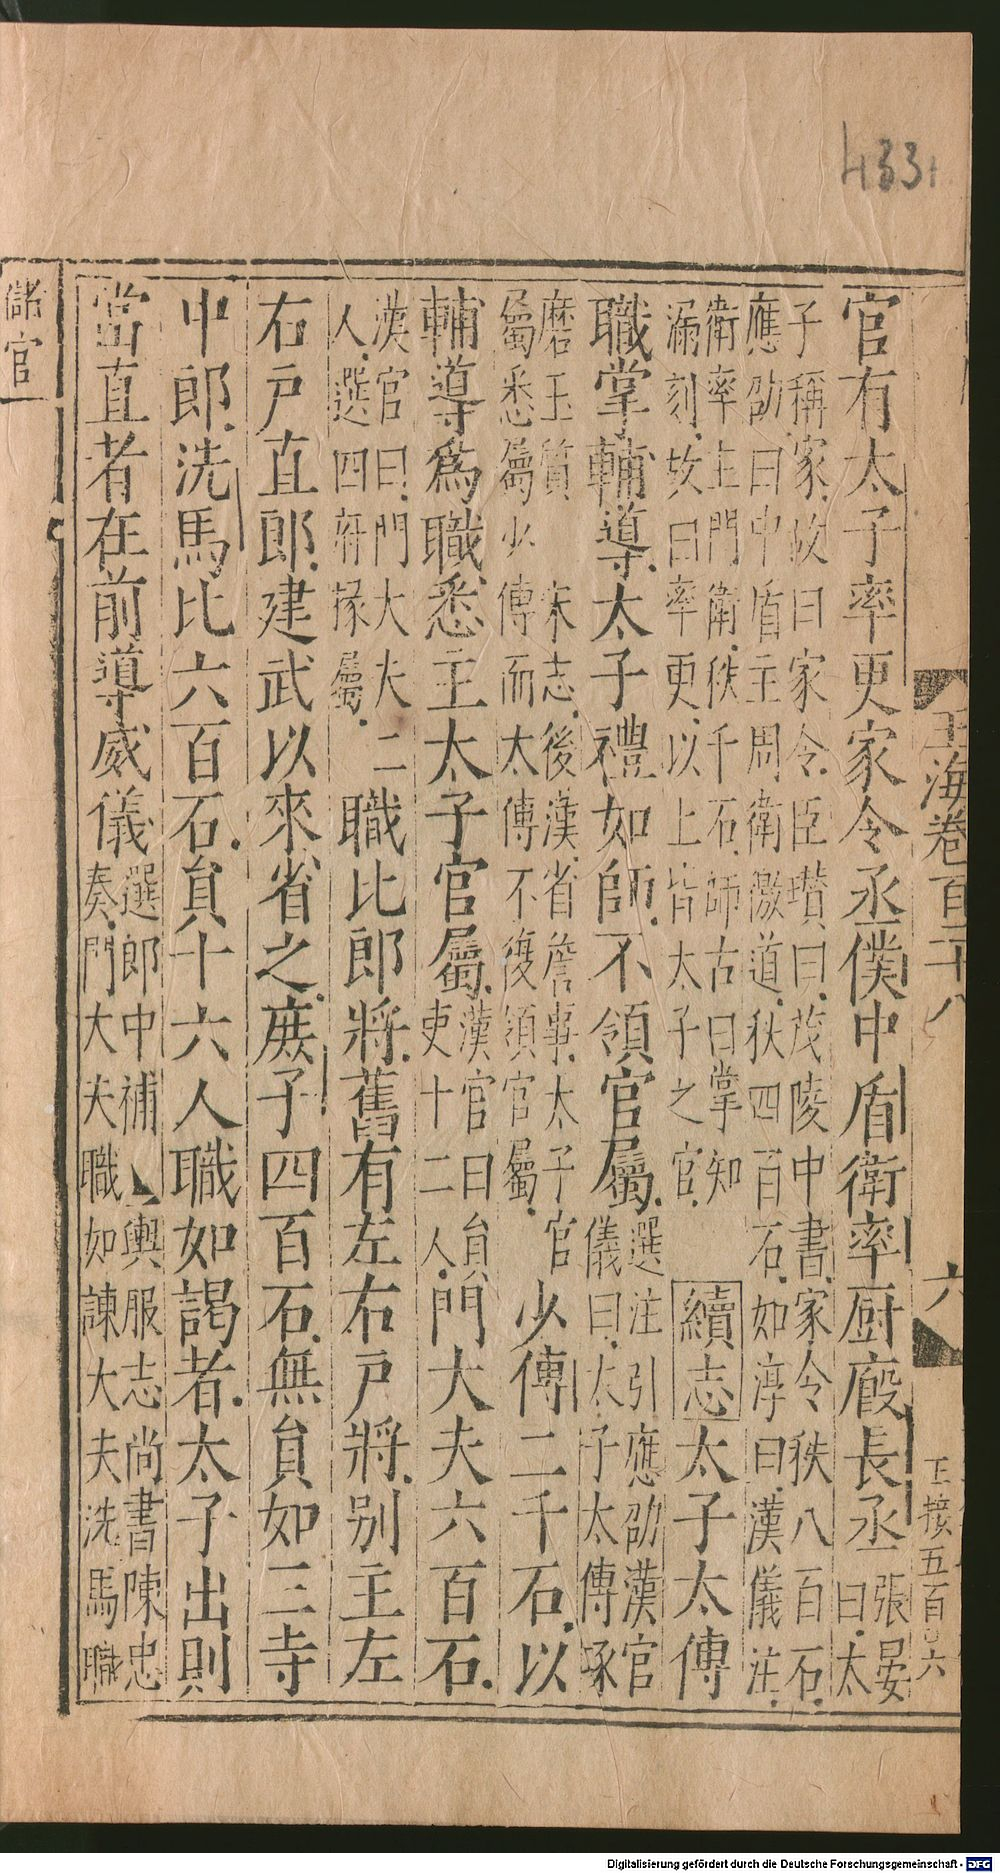 4331
玉海卷百二十八
六
正接五百〇六
官有太子率更家令丞僕中盾衛率厨廄長丞張晏曰太
子稱家故曰家令臣瓉曰茂陵中書家令秩八百石
應劭曰中盾主周衛徼道秩四百石如淳曰漢儀注
衛率主門衛秩千石師古曰掌知
漏刻故曰率更以上皆太子之官續志太子太傅
職掌輔導太子禮如師不領官屬選注引應劭漢官
儀曰太子太傅琢
磨玉質 宋志後漢省詹事太子官
屬悉屬少傅而太傅不復領官屬少傅二千石以
輔導爲職悉主太子官屬漢官曰貟
吏十二人門大夫六百石
漢官曰門大夫二
人選四府掾屬職比郎將舊有左右戸將别主左
右戸直郎建武以來省之庶子四百石無貟如三寺
中郎洗馬比六百石貟十六人職如謁者太子出則
當直者在前導威儀選郎中補 輿服志尚書陳忠
奏門大夫職如諫大夫洗馬職
儲官一
Digitalisierung gefördert durch die Deutsche Forschungsgemeinschaft - DFG